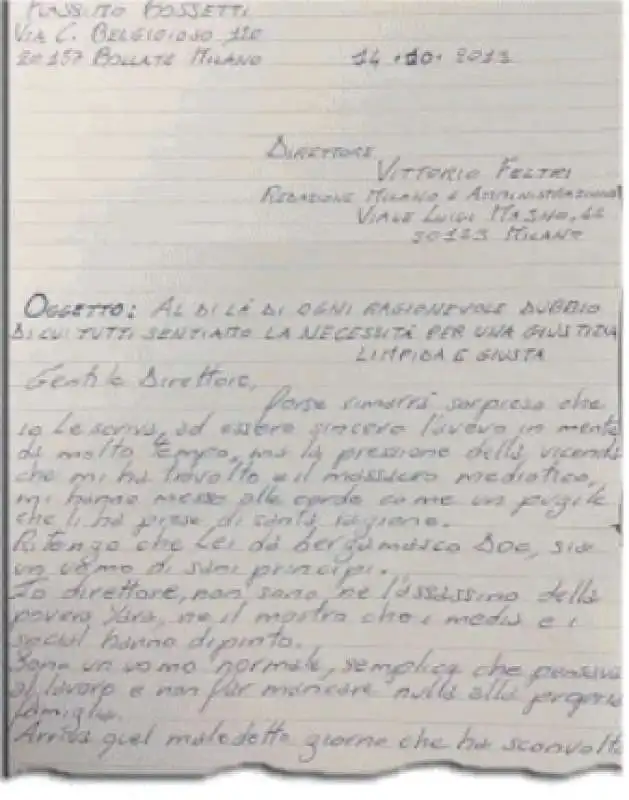 MASSIMO BOSSETTI
VIA C. BELGIOIOSO 120
20157 BOLLATE MILANO 14.10.2019
DIRETTORE
VITTORIO FELTRI
REDAZIONE MILANO E AMMINISTRAZIONE
VIALE LUIGI MAJNO, 42
20123 MILANO
OGGETTO: AL DI LÀ DI OGNI RAGIONEVOLE DUBBIO
DI CUI TUTTI SENTIAMO LA NECESSITÀ PER UNA GIUSTIZIA
LIMPIDA E GIUSTA
Gentile Direttore,
forse rimarrà sorpreso che
io Le scriva, ad essere sincero l'avevo in mente
da molto tempo, ma la pressione della vicenda
che mi ha travolto e il massacro mediatico,
mi hanno messo alle corde come un pugile
che li ha prese di santa ragione.
Ritengo che Lei da bergamasco Doc, sia
un uomo di sani principi.
Io direttore, non sono ne l'assassino della
povera Yara, ne il mostro che i media e i
social hanno dipinto.
Sono un uomo normale, semplice che pensava
al lavoro e non far mancare nulla alla propria
famiglia.
Arriva quel maledetto giorno che ha sconvolto